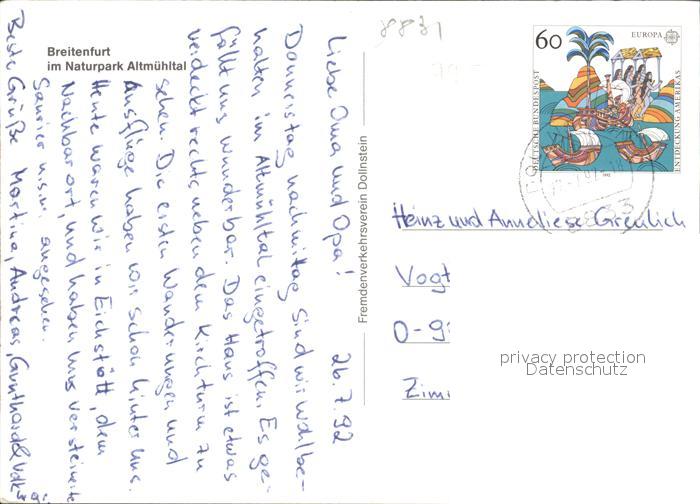 Breitenfurt
im Naturpark Altmühltal
Liebe Oma und Opa! 26.7.92
Donnerstag nachmittag sind wir wohlbe-
halten im Altmühltal eingetroffen. Es ge-
fällt uns wunderbar. Das Haus ist etwas
verdeckt rechts neben dem Kirchturm zu
sehen. Die ersten Wanderungen und
Ausflüge haben wir schon hinter uns.
Heute waren wir in Eichstätt, dem
Nachbarort, und haben uns versteinerte
Saurier u.s.w. angesehen.
Beste Grüße Martina, Andreas, Gunthard &
Fremdenverkehrsverein Dollnstein
8831
60
EUROPA
DEUTSCHE BUNDESPOST
ENTDECKUNG AMERIKAS
1992
Heinz und Anneliese Greulich
Vogt
O-9
Zim
privacy protection
Datenschutz